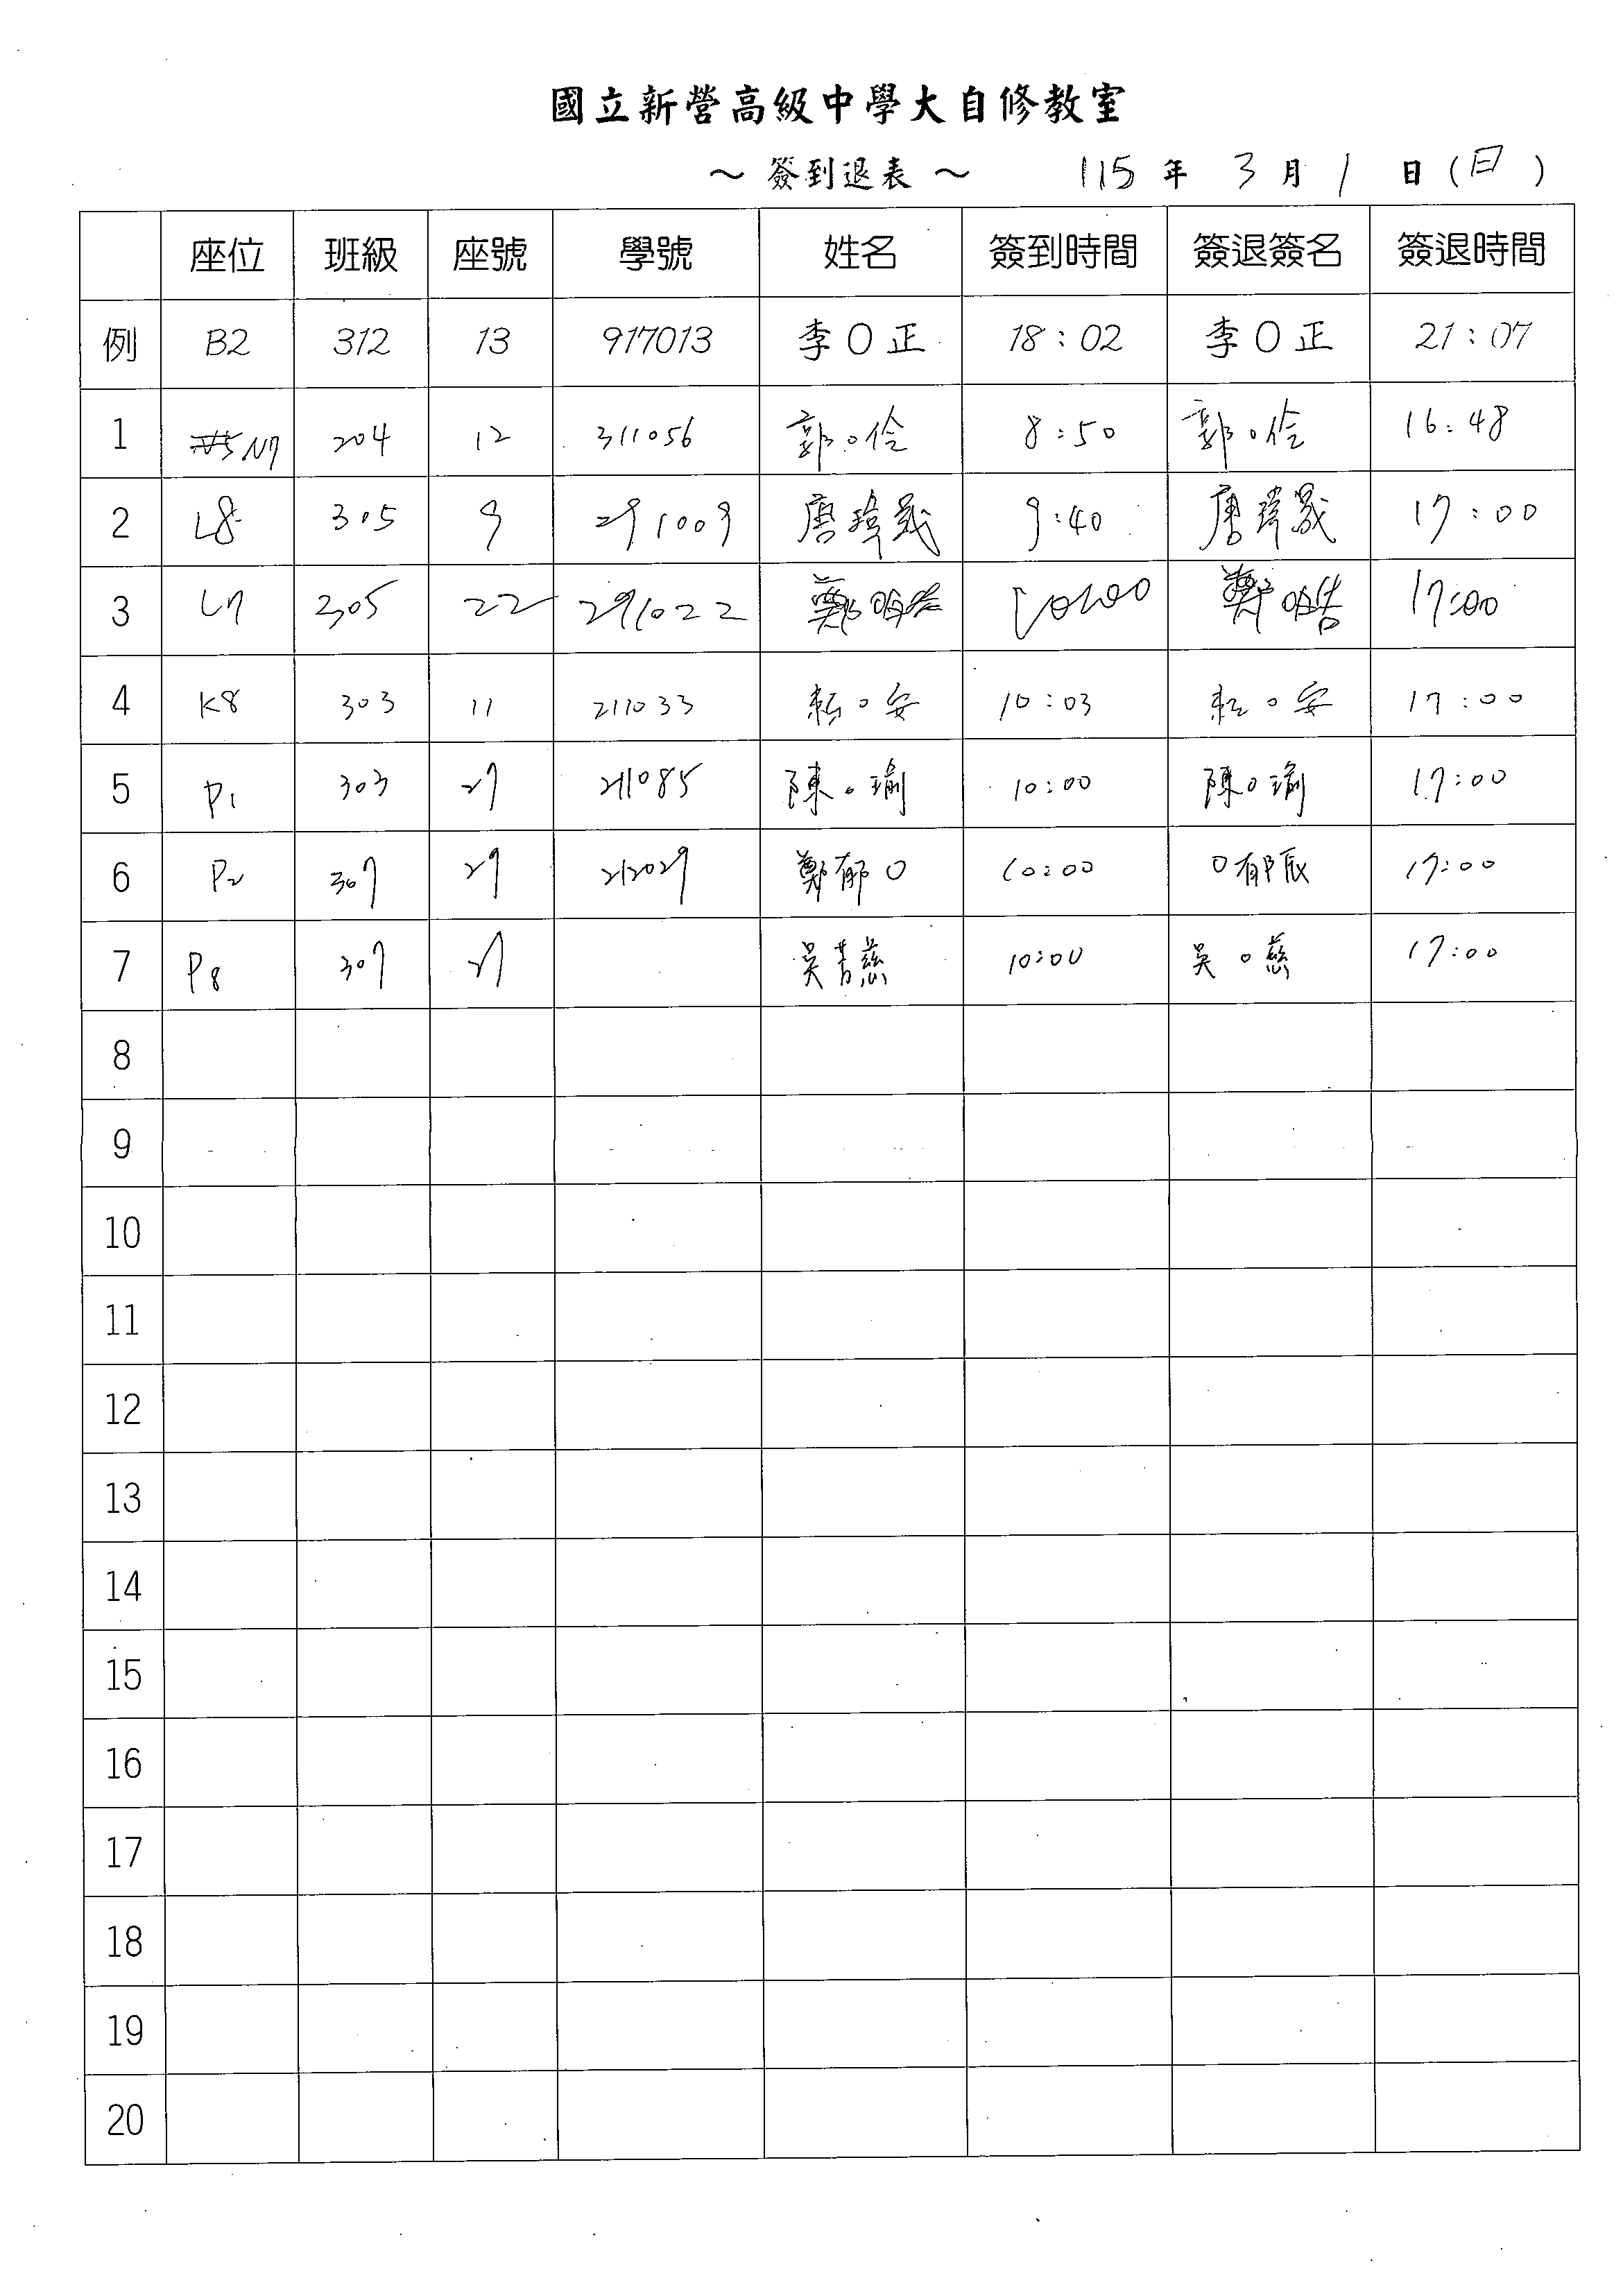 國立新營高級中學大自修教室
～ 簽到退表 ～ 115 年 3 月 1 日 (日)
座位 班級 座號 學號 姓名 簽到時間 簽退簽名 簽退時間
例 B2 312 13 917013 李O正 18:02 李O正 21:07
1 N7 204 12 311056 郭O伶 8:50 郭O伶 16:48
2 L8 305 9 291009 唐瑋晟 9:40 唐瑋晟 17:00
3 L7 305 22 291022 鄭皓 17:00
4 K8 303 11 211033 O安 10:03 O安 17:00
5 P1 303 27 211085 陳O瑜 10:00 陳O瑜 17:00
6 P2 307 29 212029 鄭郁O 10:00 O郁辰 17:00
7 P8 307 27 吳菁慈 10:00 吳O慈 17:00
8
9
10
11
12
13
14
15
16
17
18
19
20